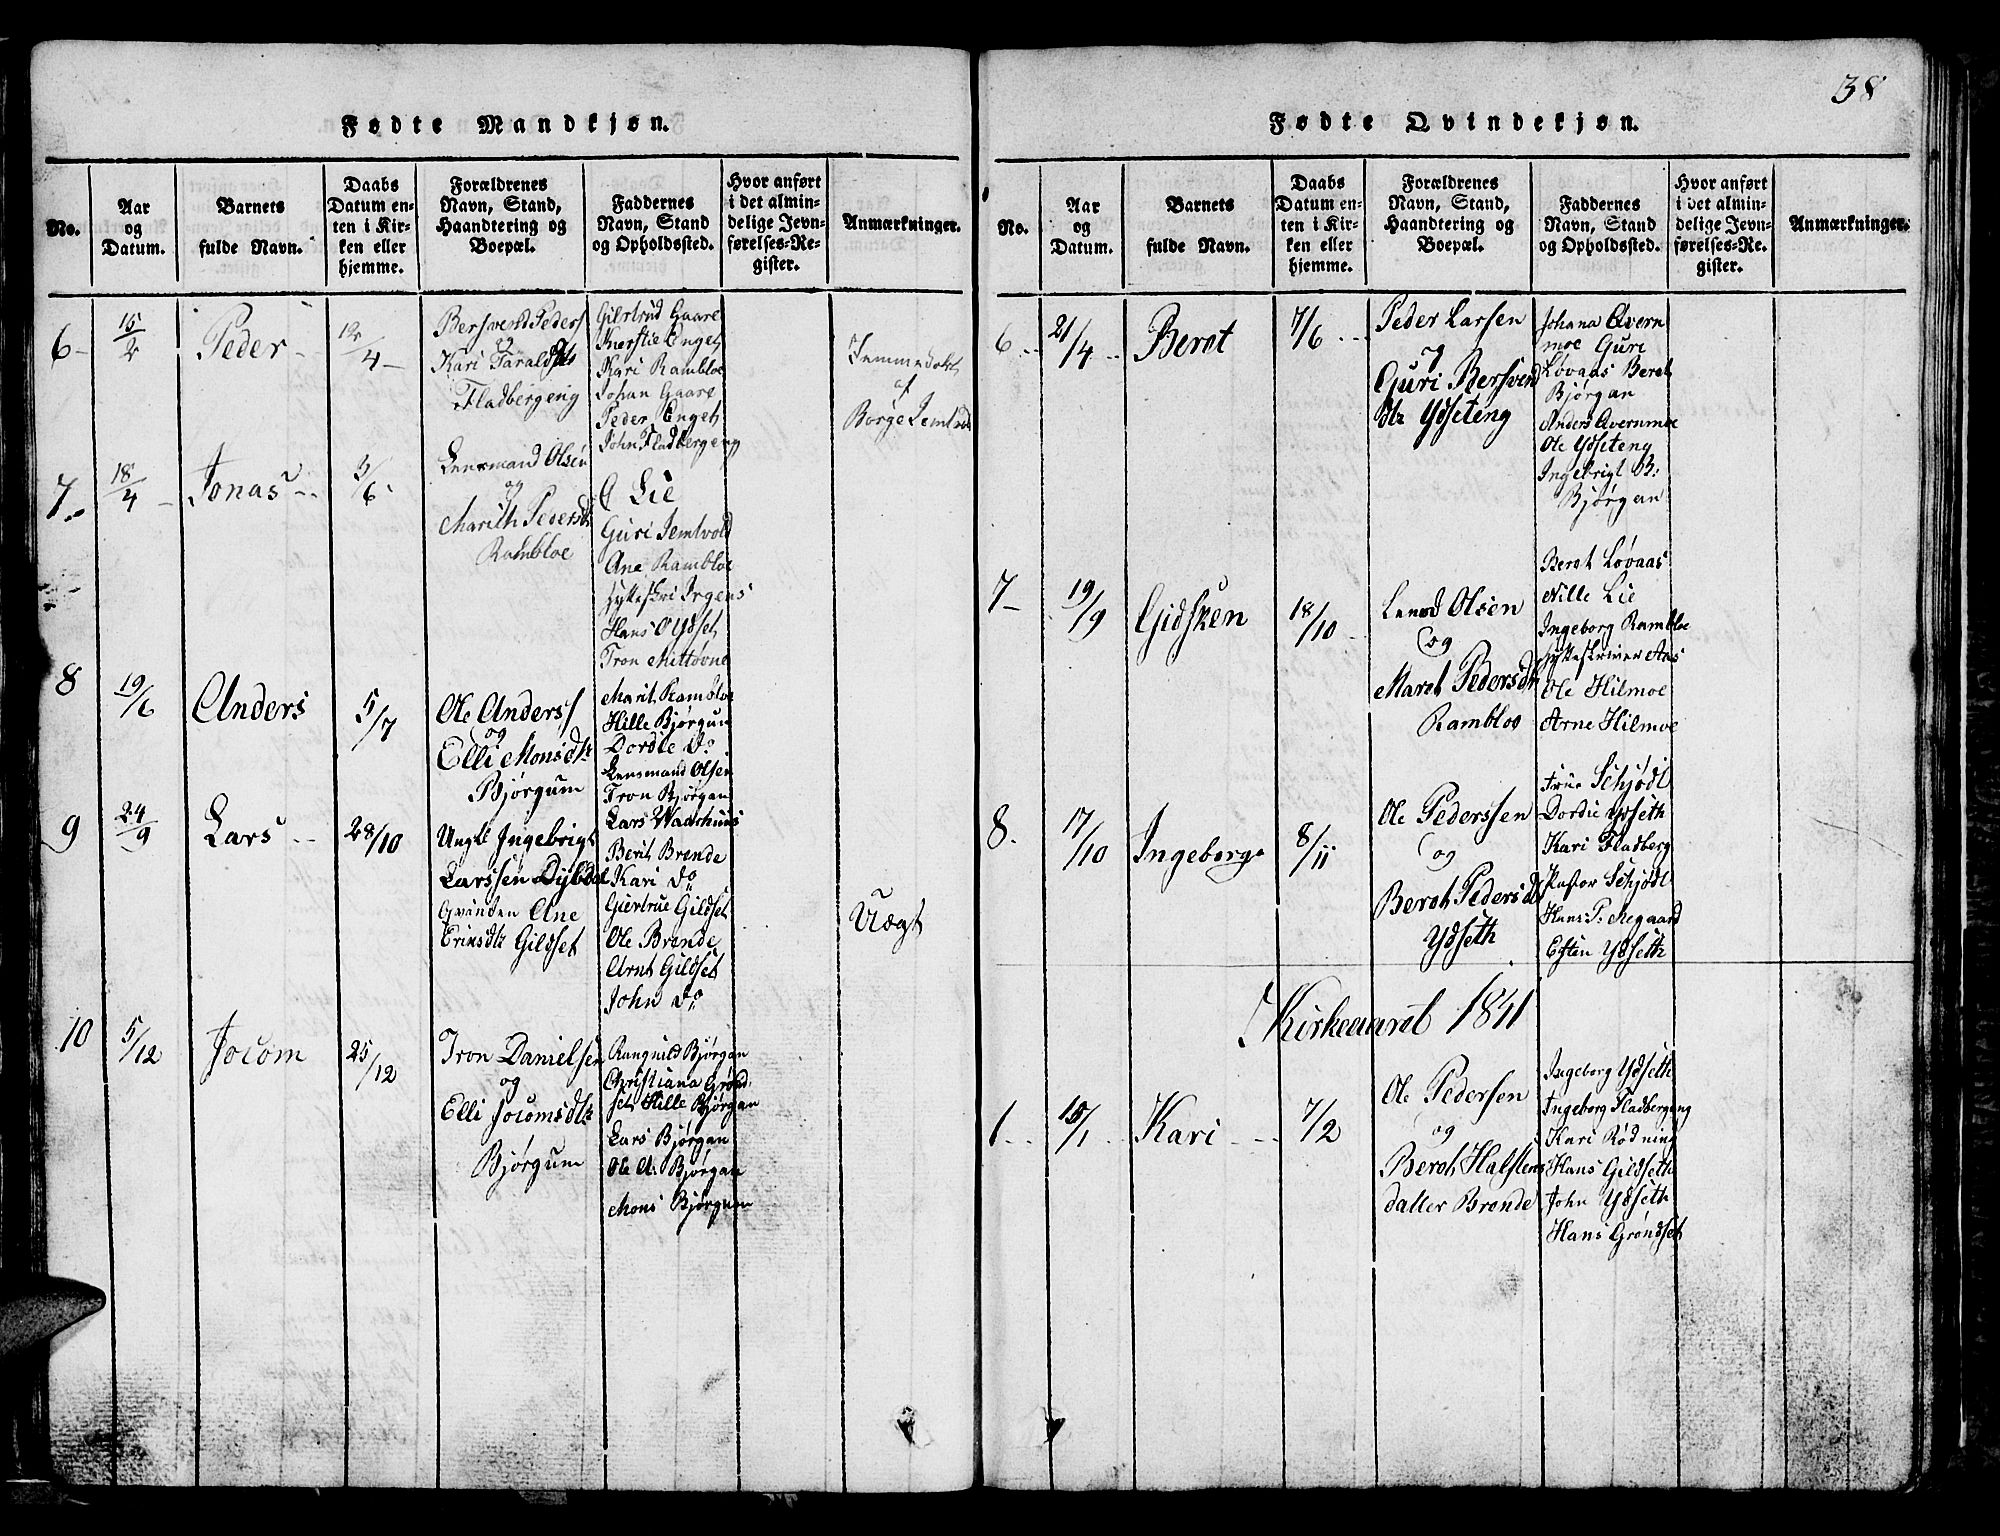 38
Fødte Mandkjøn.
No.
Aar og Datum.
Barnets fulde Navn.
Daabs Datum enten i Kirken eller hjemme.
Forældrenes Navn, Stand, Haandtering og Boepæl.
Faddernes Navn, Stand og Opholdssted.
Hvor anført i det almindelige Jevnførelses-Register.
Anmærkninger.
6
15/2
Peder
12/4
Bersvend Peders
og
Kari Taraldsdtr
Fladbergeng
Giertrud Gaare
Kerstie Enget
Kari Rambloe
Johan Gaare
Peder Enget
John Fladbergeng
af
Borge Jemtvold
7
18/4
Jonas
3/6
Lensmand Olsen
og
Marith Pedersdtr
Rambloe
Lie
Guri Jemtvold
Ane Rambloe
Hytteskri Irgens
Hans O Ydset
Tron Mittøvne
8
19/6
Anders
5/7
Ole Anderss
og
Elli Monsdtr
Bjørgum
Marit Rambloe
Hille Bjørgum
Dordie Do
Lensmand Olsen
Tron Bjørgan
9
24/9
Lars
28/10
Ungkl Ingebrigt
Larssen Dybdal
Qvinden Ane
Erinsdtr Gildset
Lars Waarhuus
Berit Brende
Kari Do
Giertrue Gildset
Ole Brende
Arnt Gildset
John Do
Uægt
10
5/12
Jocom
25/12
Tron Danielsen
og
Elli Jocomsdtr
Bjørgum
Rangnild Bjørgan
Christiana Grønd
set Hille Bjørgan
Lars Bjørgan
Ole A: Bjørgan
Mons Bjørgum
Fødte Qvindekjøn.
No.
Aar og Datum.
Barnets fulde Navn.
Daabs Datum enten i Kirken eller hjemme.
Forældrenes Navn, Stand, Haandtering og Boepæl.
Faddernes Navn, Stand og Opholdssted.
Hvor anført i det almindelige Jevnførelses-Register.
Anmærkninger.
6
21/4
Beret
7/6
Peder Larsen
og
Guri Bersvend
dtr Ydseteng
Johana Qvern
moe Guri
Løvaas Beret
Bjørgan
Anders Qvernmoe
Ole Ydseteng
Ingebrigt B:
Bjørgan
7
19/9
Gidsken
18/10
Lensd Olsen
og
Maret Pedersdtr
Rambloe
Beret Løvaas
Nille Lie
Ingeborg Rambloe
Hytteskriver Aas
Ole Hilmoe
Arne Hilmoe
8.
17/10
Ingeborg
8/11
Ole Pederssen
og
Beret Pedersdtr
Ydseth
Frue Schjødt
Dordie Ydseth
Kari Fladberg
Pastor Schjødt
Hans P. Aegaard
Esten Ydseth
Kirkeaaret 1841
1
15/1
Kari
7/2
Ole Pedersen
og
Beret Halstens
datter Brende
Ingeborg Ydseth
Ingeborg Fladbergeng
Kari Rødning
Hans Gildseth
John Ydseth
Hans Grøndset